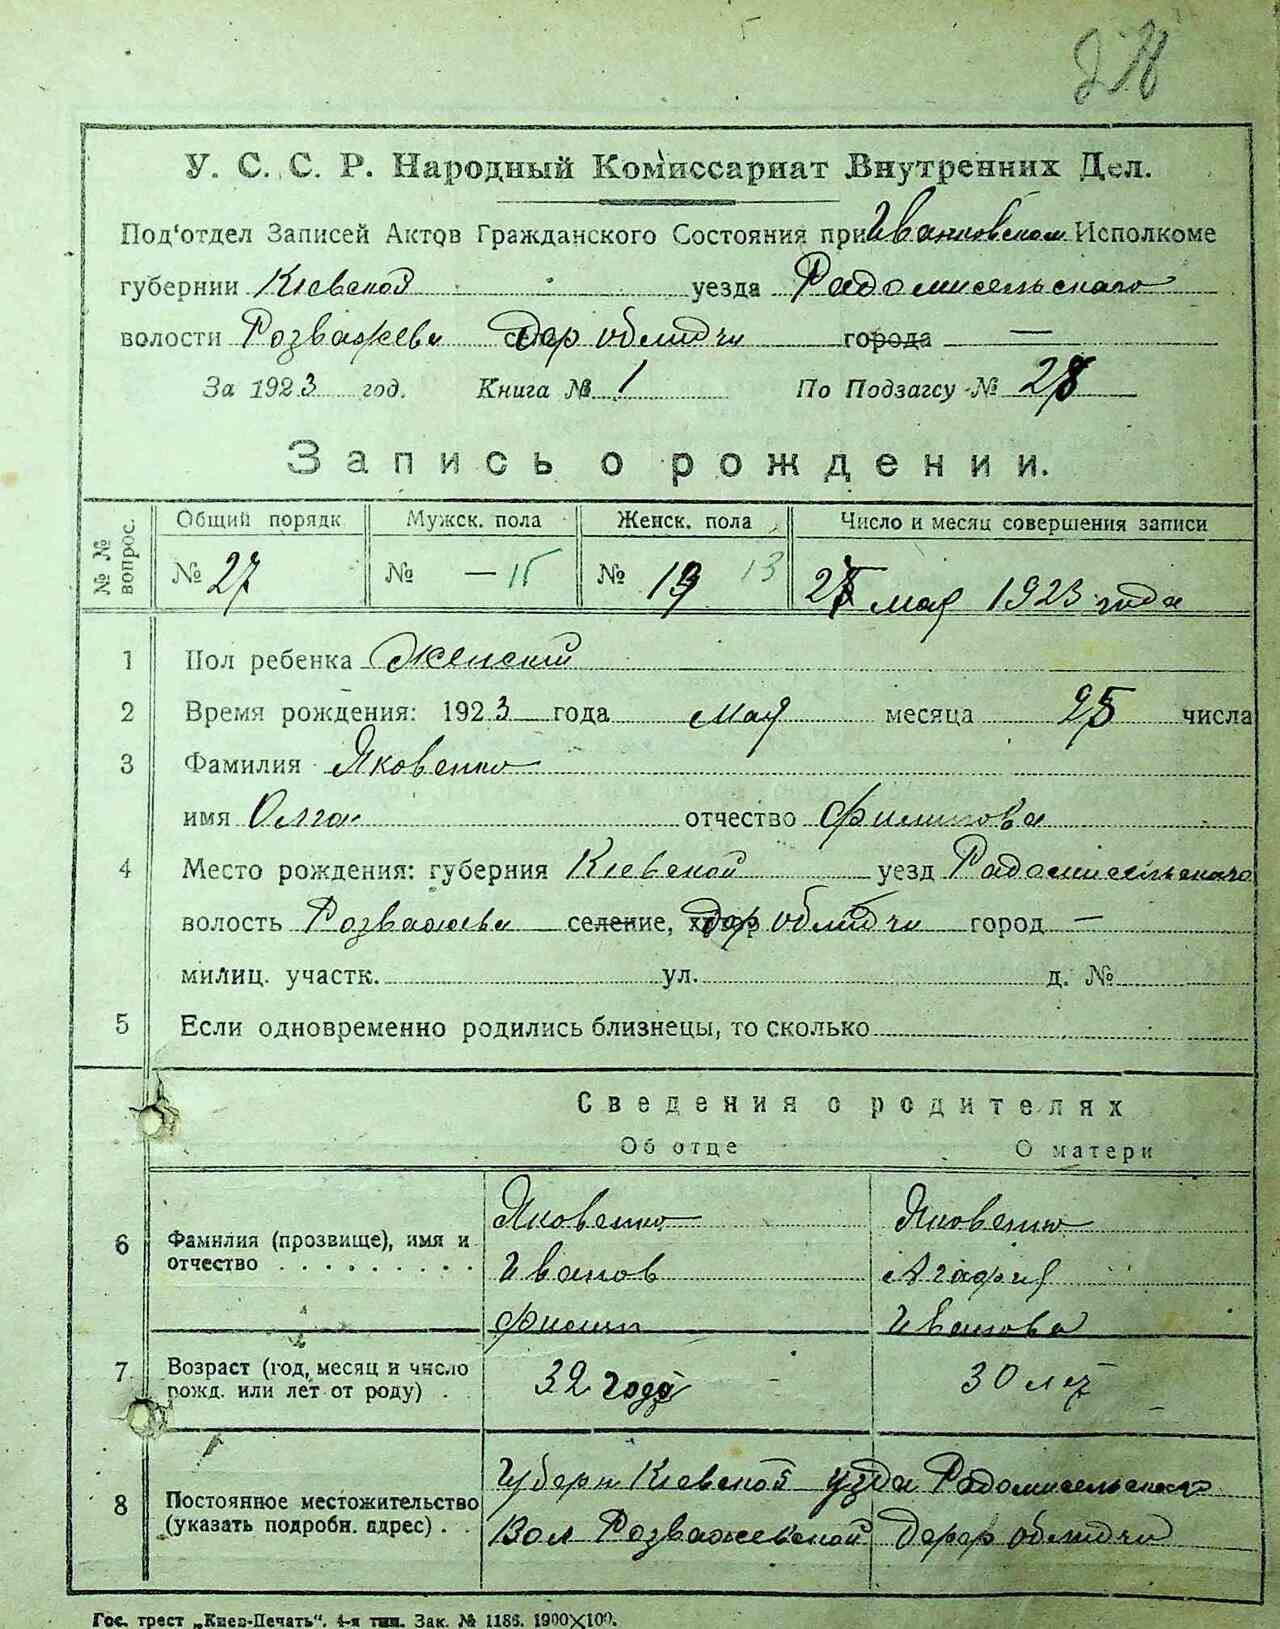 У. С. С. Р. Народный Комиссариат Внутренних Дел.
Под'отдел Записей Актов Гражданского Состояния при Иванковском Исполкоме
губернии Кіевской уезда Радомисельского
волости Розважева дер облитки города —
За 1923 год. Книга № 1 По Подзагсу № 28
Запись о рождении.
№ № вопрос. Общий порядк Мужск. пола Женск. пола Число и месяц совершения записи
№ 27 № — 15 № 19 13 мая 1923 года
1 Пол ребенка Женский
2 Время рождения: 1923 года мая месяца 25 числа
3 Фамилия Яковенко
имя Олга отчество Филипова
4 Место рождения: губерния Кіевской уезд Радомисельского
волость Розважева селение, дер облитки город —
милиц. участк. ул. д. №
5 Если одновременно родились близнецы, то сколько
Сведения о родителях
Об отце О матери
6 Фамилия (прозвище), имя и отчество Яковенко Яковенко
Иванов Агафия
Филип Иванова
7 Возраст (год, месяц и число рожд. или лет от роду) 32 года 30 лет
8 Постоянное местожительство (указать подробн. адрес) Губерн Кіевской узда Радомисельского
Вол Розважевской дерев облитки
Гос. трест „Киев-Печать". 4-я тип. Зак. № 1186. 1900×100.